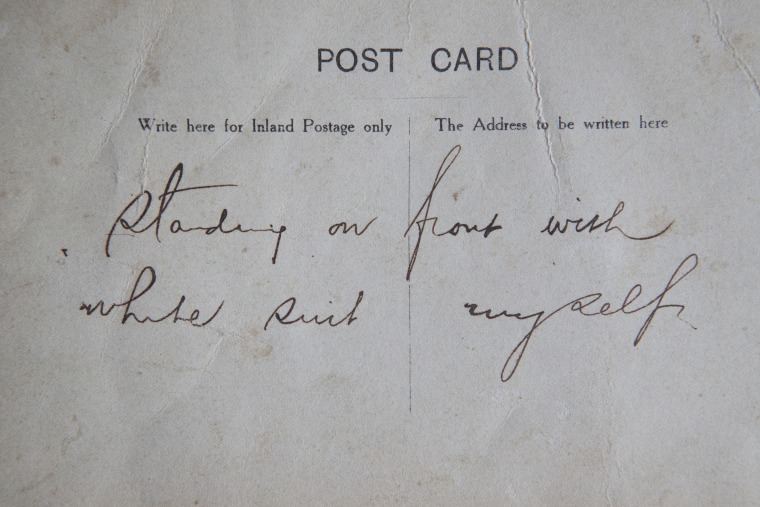 POST CARD
Write here for Inland Postage only
The Address to be written here
Standing on front with
white suit myself